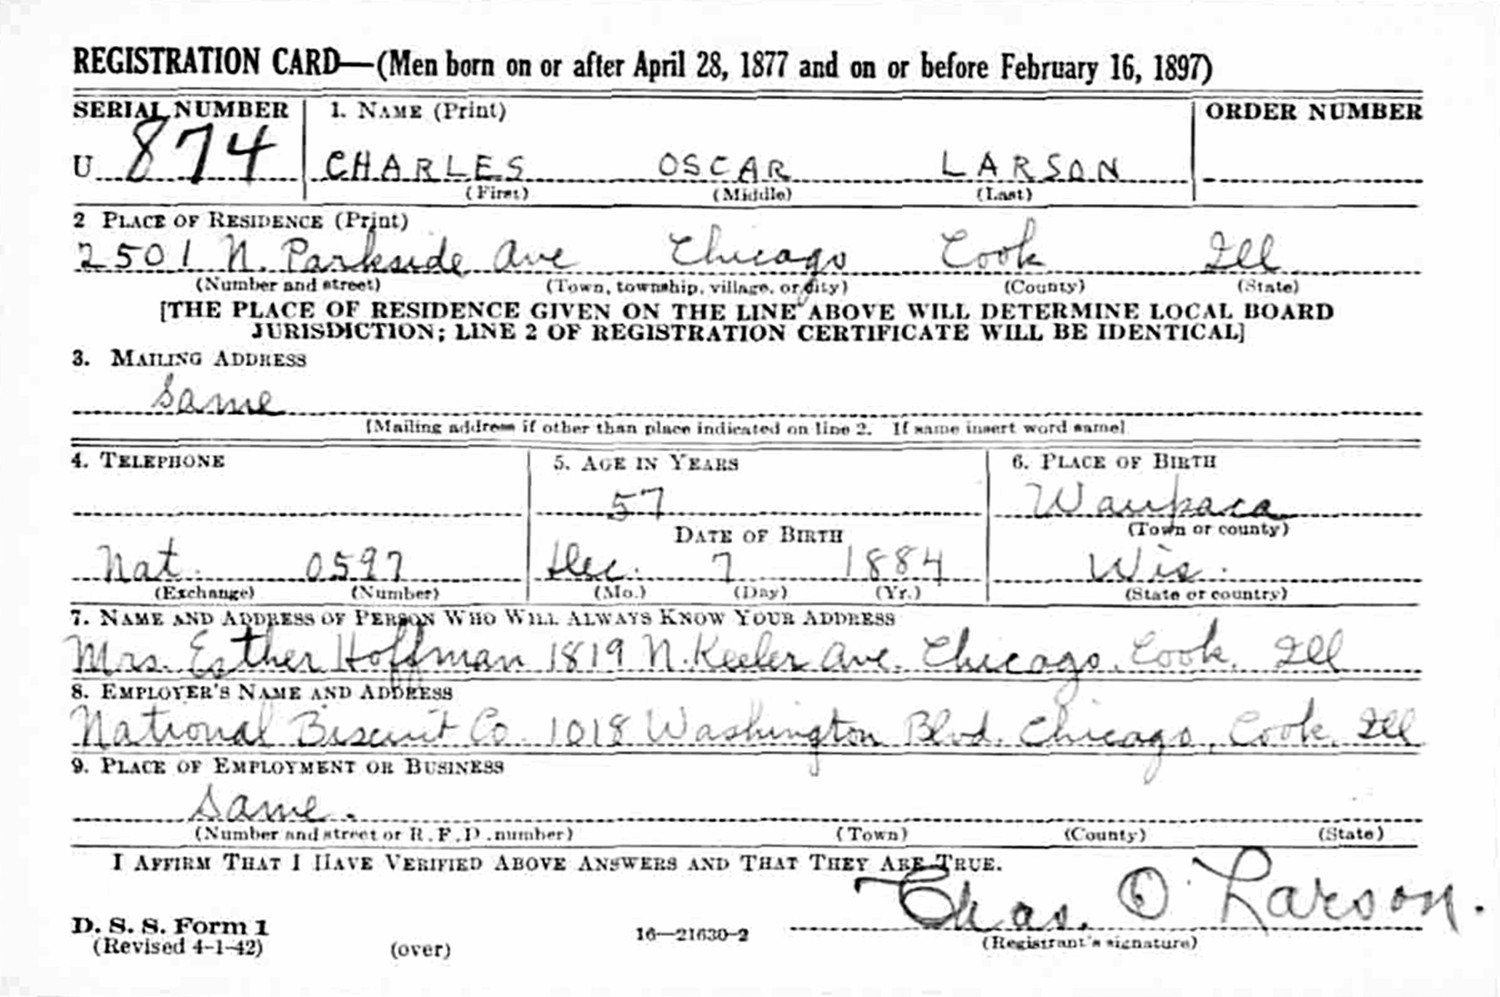 REGISTRATION CARD—(Men born on or after April 28, 1877 and on or before February 16, 1897)
SERIAL NUMBER 1. NAME (Print) ORDER NUMBER
U 874 CHARLES OSCAR LARSON
(First) (Middle) (Last)
2 PLACE OF RESIDENCE (Print)
2501 N. Parkside Ave Chicago Cook Ill
(Number and street) (Town, township, village, or city) (County) (State)
[THE PLACE OF RESIDENCE GIVEN ON THE LINE ABOVE WILL DETERMINE LOCAL BOARD
JURISDICTION; LINE 2 OF REGISTRATION CERTIFICATE WILL BE IDENTICAL]
3. MAILING ADDRESS
Same
[Mailing address if other than place indicated on line 2. If same insert word same]
4. TELEPHONE 5. AGE IN YEARS 6. PLACE OF BIRTH
57 Waupaca
DATE OF BIRTH (Town or county)
Nat. 0597 Dec. 7 1884 Wis.
(Exchange) (Number) (Mo.) (Day) (Yr.) (State or country)
7. NAME AND ADDRESS OF PERSON WHO WILL ALWAYS KNOW YOUR ADDRESS
Mrs. Esther Hoffman 1819 N. Keeler Ave. Chicago, Cook, Ill
8. EMPLOYER'S NAME AND ADDRESS
National Biscuit Co. 1018 Washington Blvd. Chicago, Cook, Ill
9. PLACE OF EMPLOYMENT OR BUSINESS
Same.
(Number and street or R. F. D. number) (Town) (County) (State)
I AFFIRM THAT I HAVE VERIFIED ABOVE ANSWERS AND THAT THEY ARE TRUE.
Chas. O. Larson.
D. S. S. Form 1
(Revised 4-1-42) (over) 16—21630-2 (Registrant's signature)